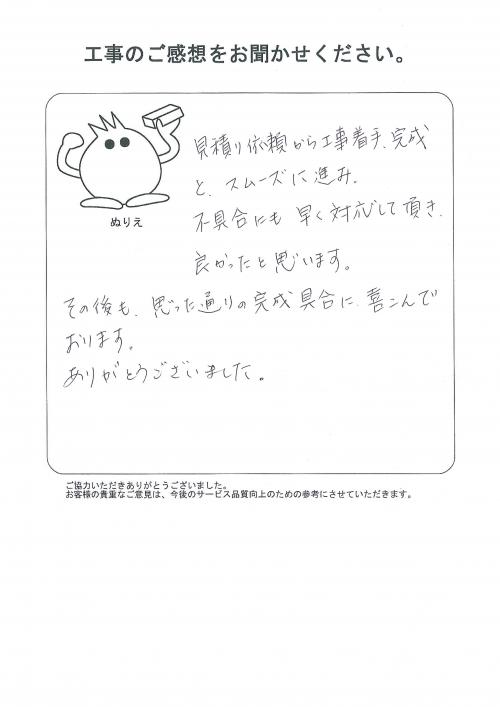 工事のご感想をお聞かせください。
見積り依頼から工事着手、完成
と、スムーズに進み、
不具合にも早く対応して頂き、
良かったと思います。
ぬりえ
その後も、思った通りの完成具合に、喜こんで
おります。
ありがとうございました。
ご協力いただきありがとうございました。
お客様の貴重なご意見は、今後のサービス品質向上のための参考にさせていただきます。